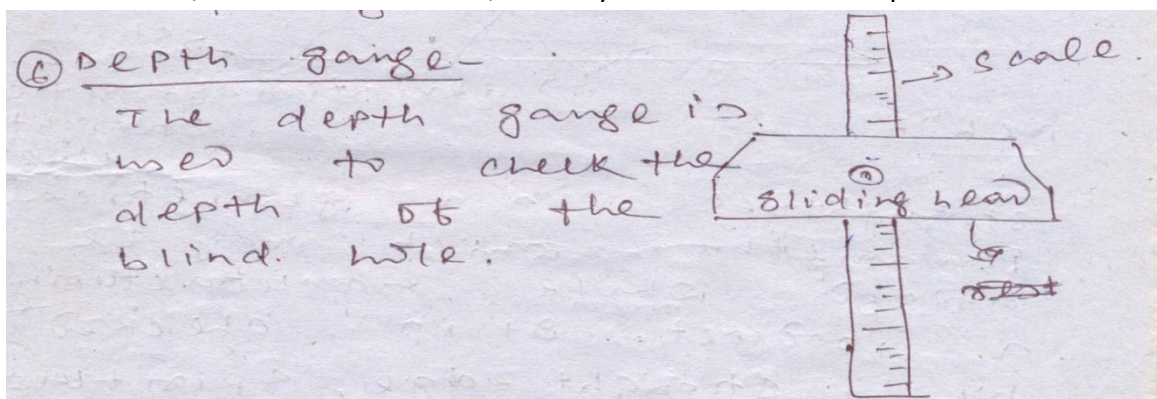 ⑥ Depth gauge-
The depth gauge is
used to check the
depth of the
blind. hole.
→ scale.
sliding head